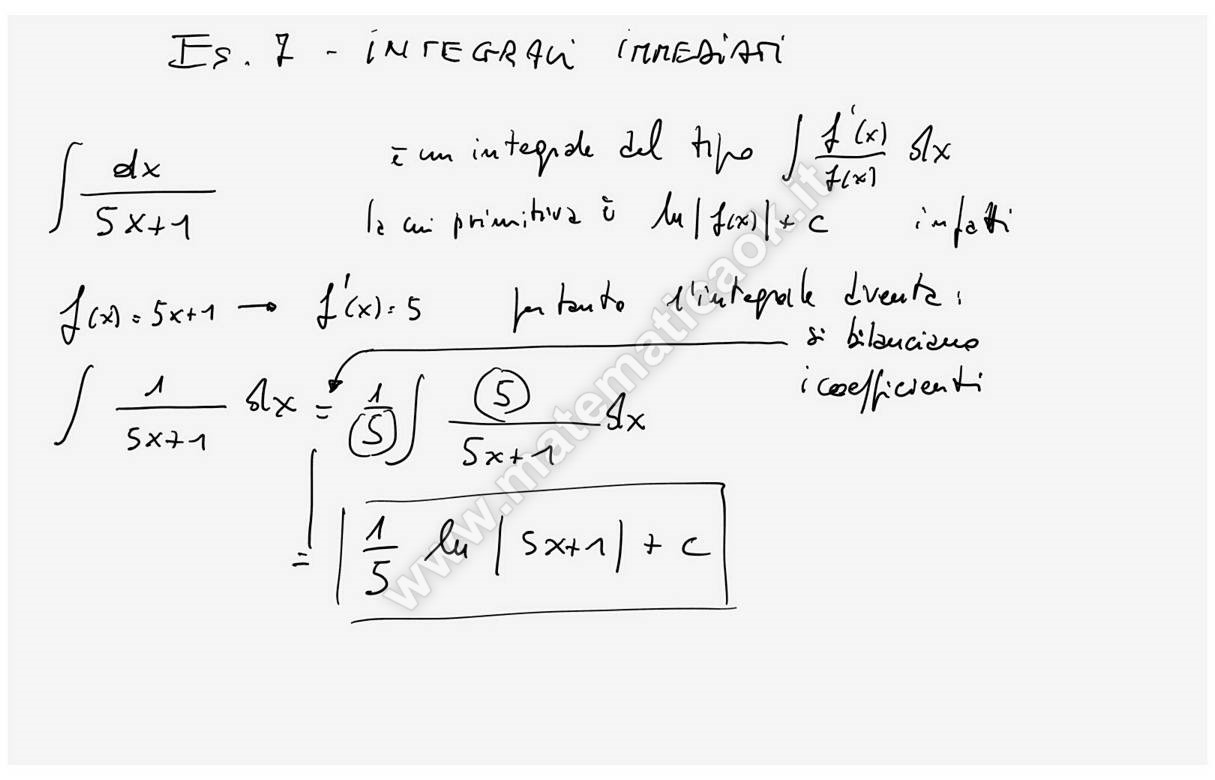 Es. 7 - INTEGRALI IMMEDIATI
∫ dx / (5x+1) è un integrale del tipo ∫ f'(x)/f(x) dx
la cui primitiva è ln|f(x)| + c infatti
f(x) = 5x+1 → f'(x) = 5 pertanto l'integrale dventa:
si bilanciano
i coefficienti
∫ 1/(5x+1) dx = 1/5 ∫ 5/(5x+1) dx
= 1/5 ln |5x+1| + c
www.matematicaok.it